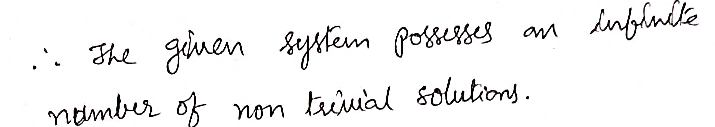 ∴ The given system possesses an infinite
number of non trivial solutions.